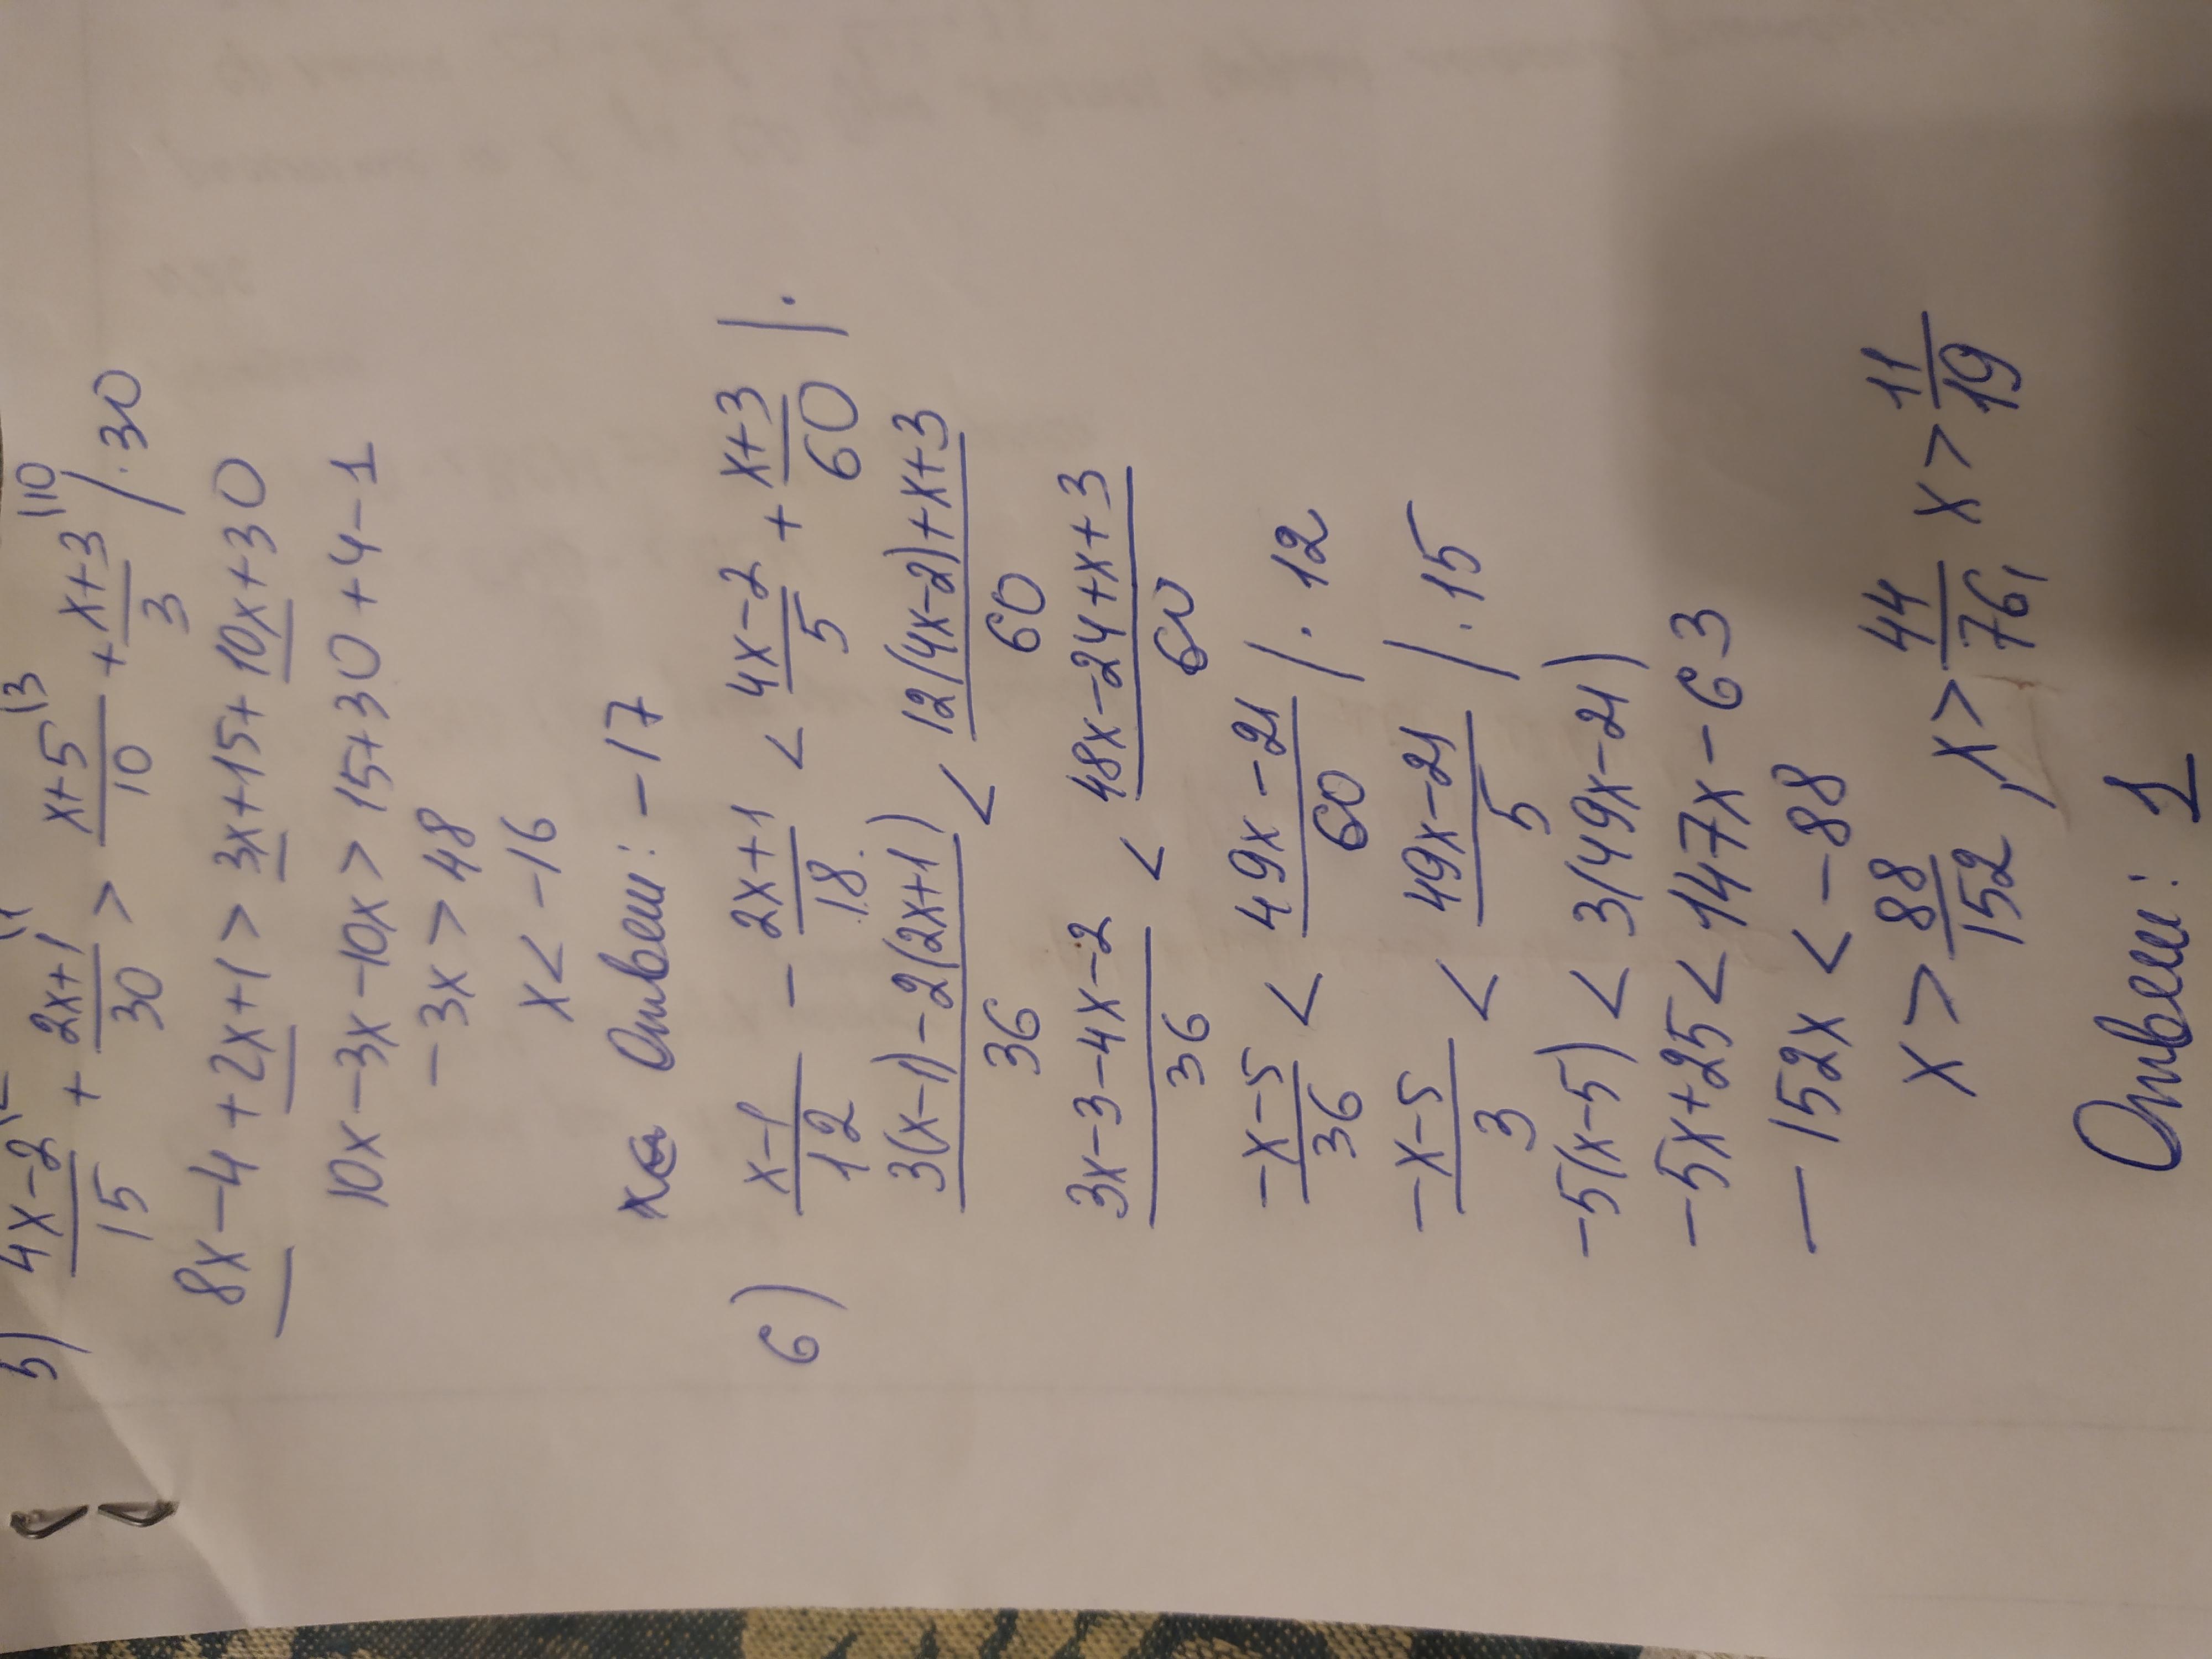 5) (4x-2)/15 \2 + (2x+1)/30 \1 > (x+5)/10 \3 + (x+3)/3 \10 / · 30
8x-4+2x+1>3x+15+10x+30
10x-3x-10x>15+30+4-1
-3x>48
x<-16
Ответ: -17
6) (x-1)/12 - (2x+1)/18 < (4x-2)/5 + (x+3)/60 / ·
(3(x-1)-2(2x+1))/36 < (12(4x-2)+x+3)/60
(3x-3-4x-2)/36 < (48x-24+x+3)/60
(-x-5)/36 < (49x-21)/60 / · 12
(-x-5)/3 < (49x-21)/5 / · 15
-5(x-5)<3(49x-21)
-5x+25<147x-63
-152x<-88
x>88/152, x>44/76, x>11/19
Ответ: 1